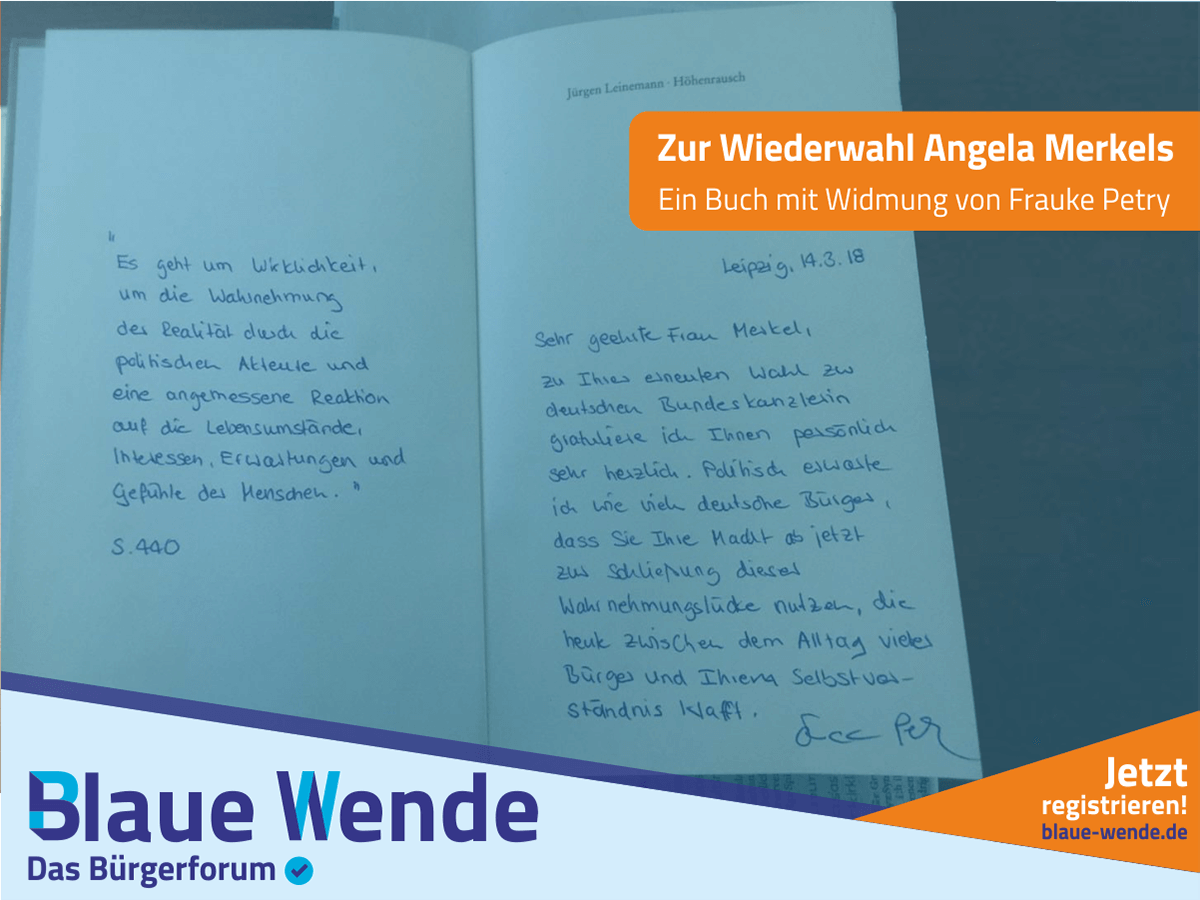 Jürgen Leinemann · Höhenrausch
Zur Wiederwahl Angela Merkels
Ein Buch mit Widmung von Frauke Petry
"
Es geht um Wirklichkeit,
um die Wahrnehmung
der Realität durch die
politischen Akteure und
eine angemessene Reaktion
auf die Lebensumstände,
Interessen, Erwartungen und
Gefühle der Menschen. "
S. 440
Leipzig, 14.3.18
Sehr geehrte Frau Merkel,
zu Ihrer erneuten Wahl zur
deutschen Bundeskanzlerin
gratuliere ich Ihnen persönlich
sehr herzlich. Politisch erwarte
ich wie viele deutsche Bürger,
dass Sie Ihre Macht ab jetzt
zur Schließung dieser
Wahrnehmungslücke nutzen, die
heute zwischen dem Alltag vieler
Bürger und Ihrem Selbstver-
ständnis klafft.
Blaue Wende
Das Bürgerforum
Jetzt
registrieren!
blaue-wende.de